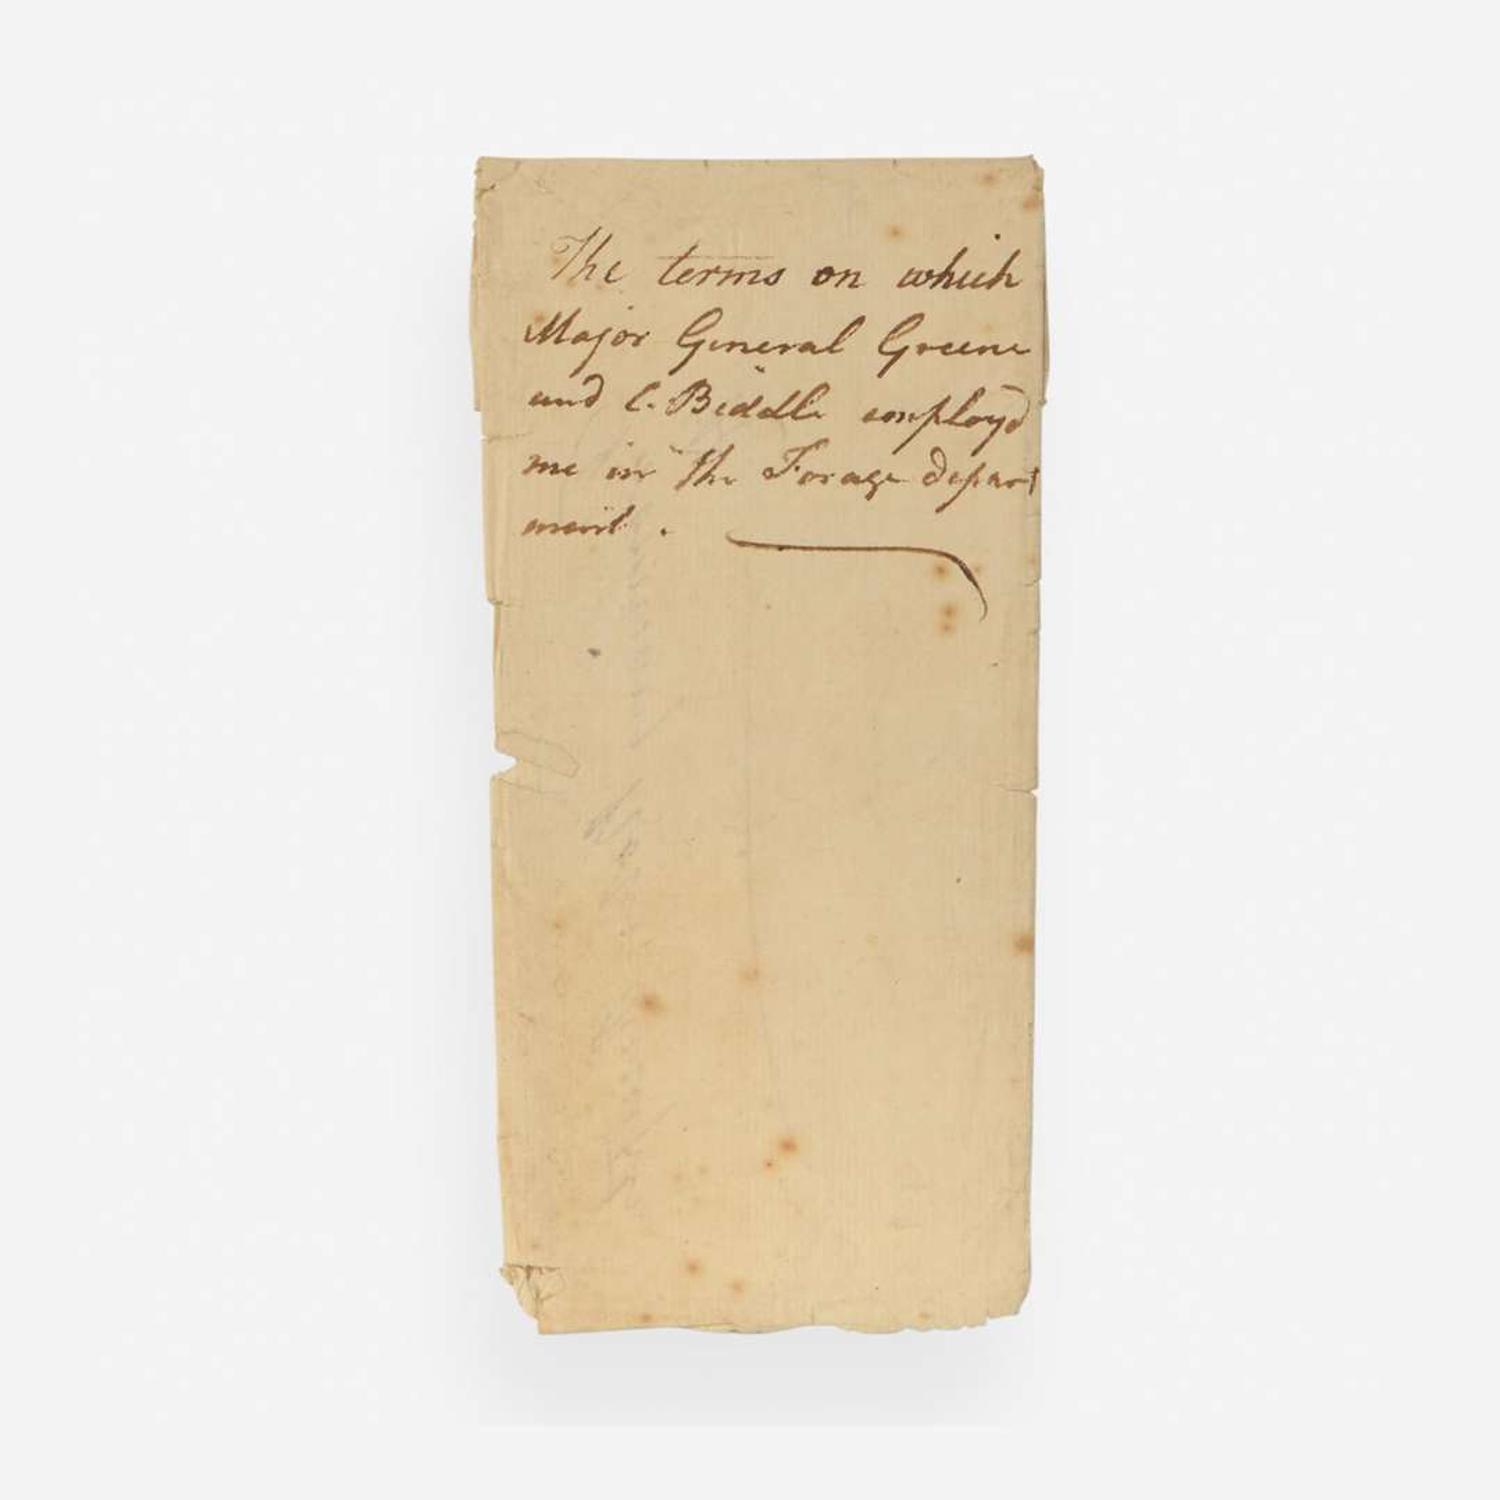 The terms on which
Major General Greene
and C. Biddle employd
me in the Forage depart
ment .